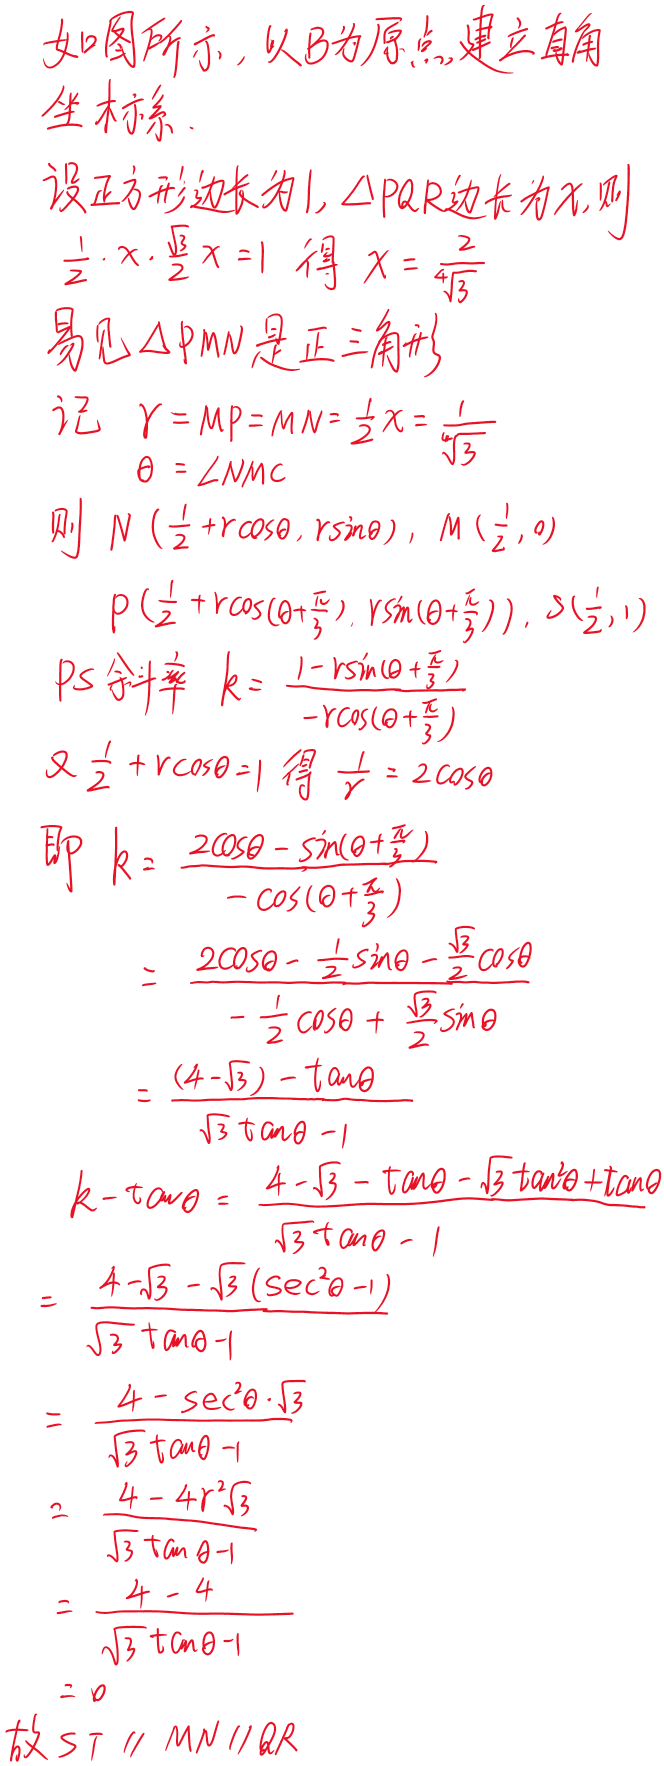 如图所示,以B为原点,建立直角
坐标系.
设正方形边长为1,△PQR边长为x,则
1/2·x·√3/2 x=1 得 x=2/∜3
易见△PMN是正三角形
记 r=MP=MN=1/2x=1/∜3
θ=∠NMC
则 N(1/2+rcosθ,rsinθ), M(1/2,0)
P(1/2+rcos(θ+π/3), rsin(θ+π/3)), S(1/2,1)
PS斜率 k=(1-rsin(θ+π/3))/(-rcos(θ+π/3))
又 1/2+rcosθ=1 得 1/r=2cosθ
即 k=(2cosθ-sin(θ+π/3))/(-cos(θ+π/3))
=(2cosθ-1/2sinθ-√3/2cosθ)/(-1/2cosθ+√3/2sinθ)
=((4-√3)-tanθ)/(√3tanθ-1)
k-tanθ=(4-√3-tanθ-√3tan²θ+tanθ)/(√3tanθ-1)
=(4-√3-√3(sec²θ-1))/(√3tanθ-1)
=(4-sec²θ·√3)/(√3tanθ-1)
=(4-4r²√3)/(√3tanθ-1)
=(4-4)/(√3tanθ-1)
=0
故ST∥MN∥QR